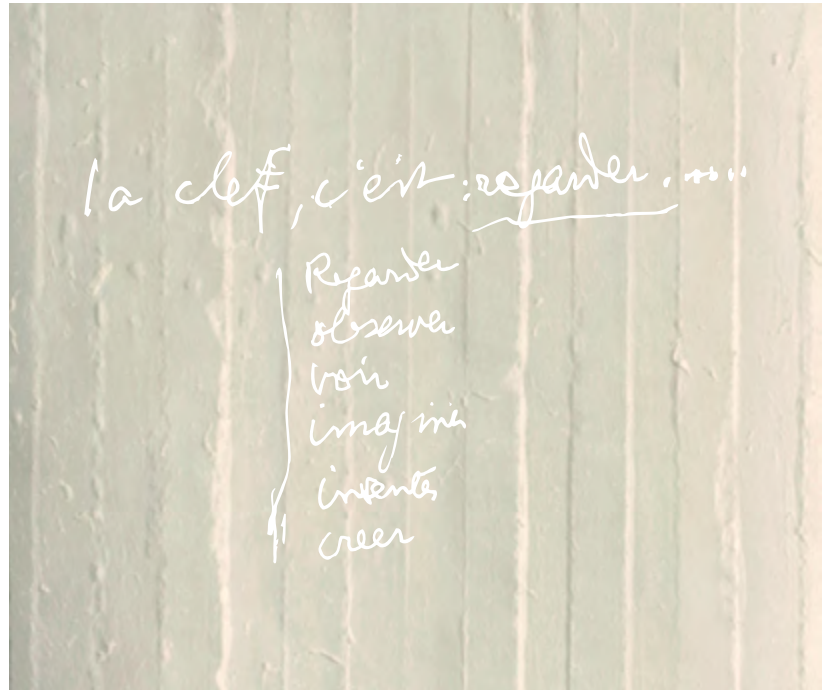 la clef, c'est : regarder .....
Regarder
observer
voir
imaginer
inventer
creer